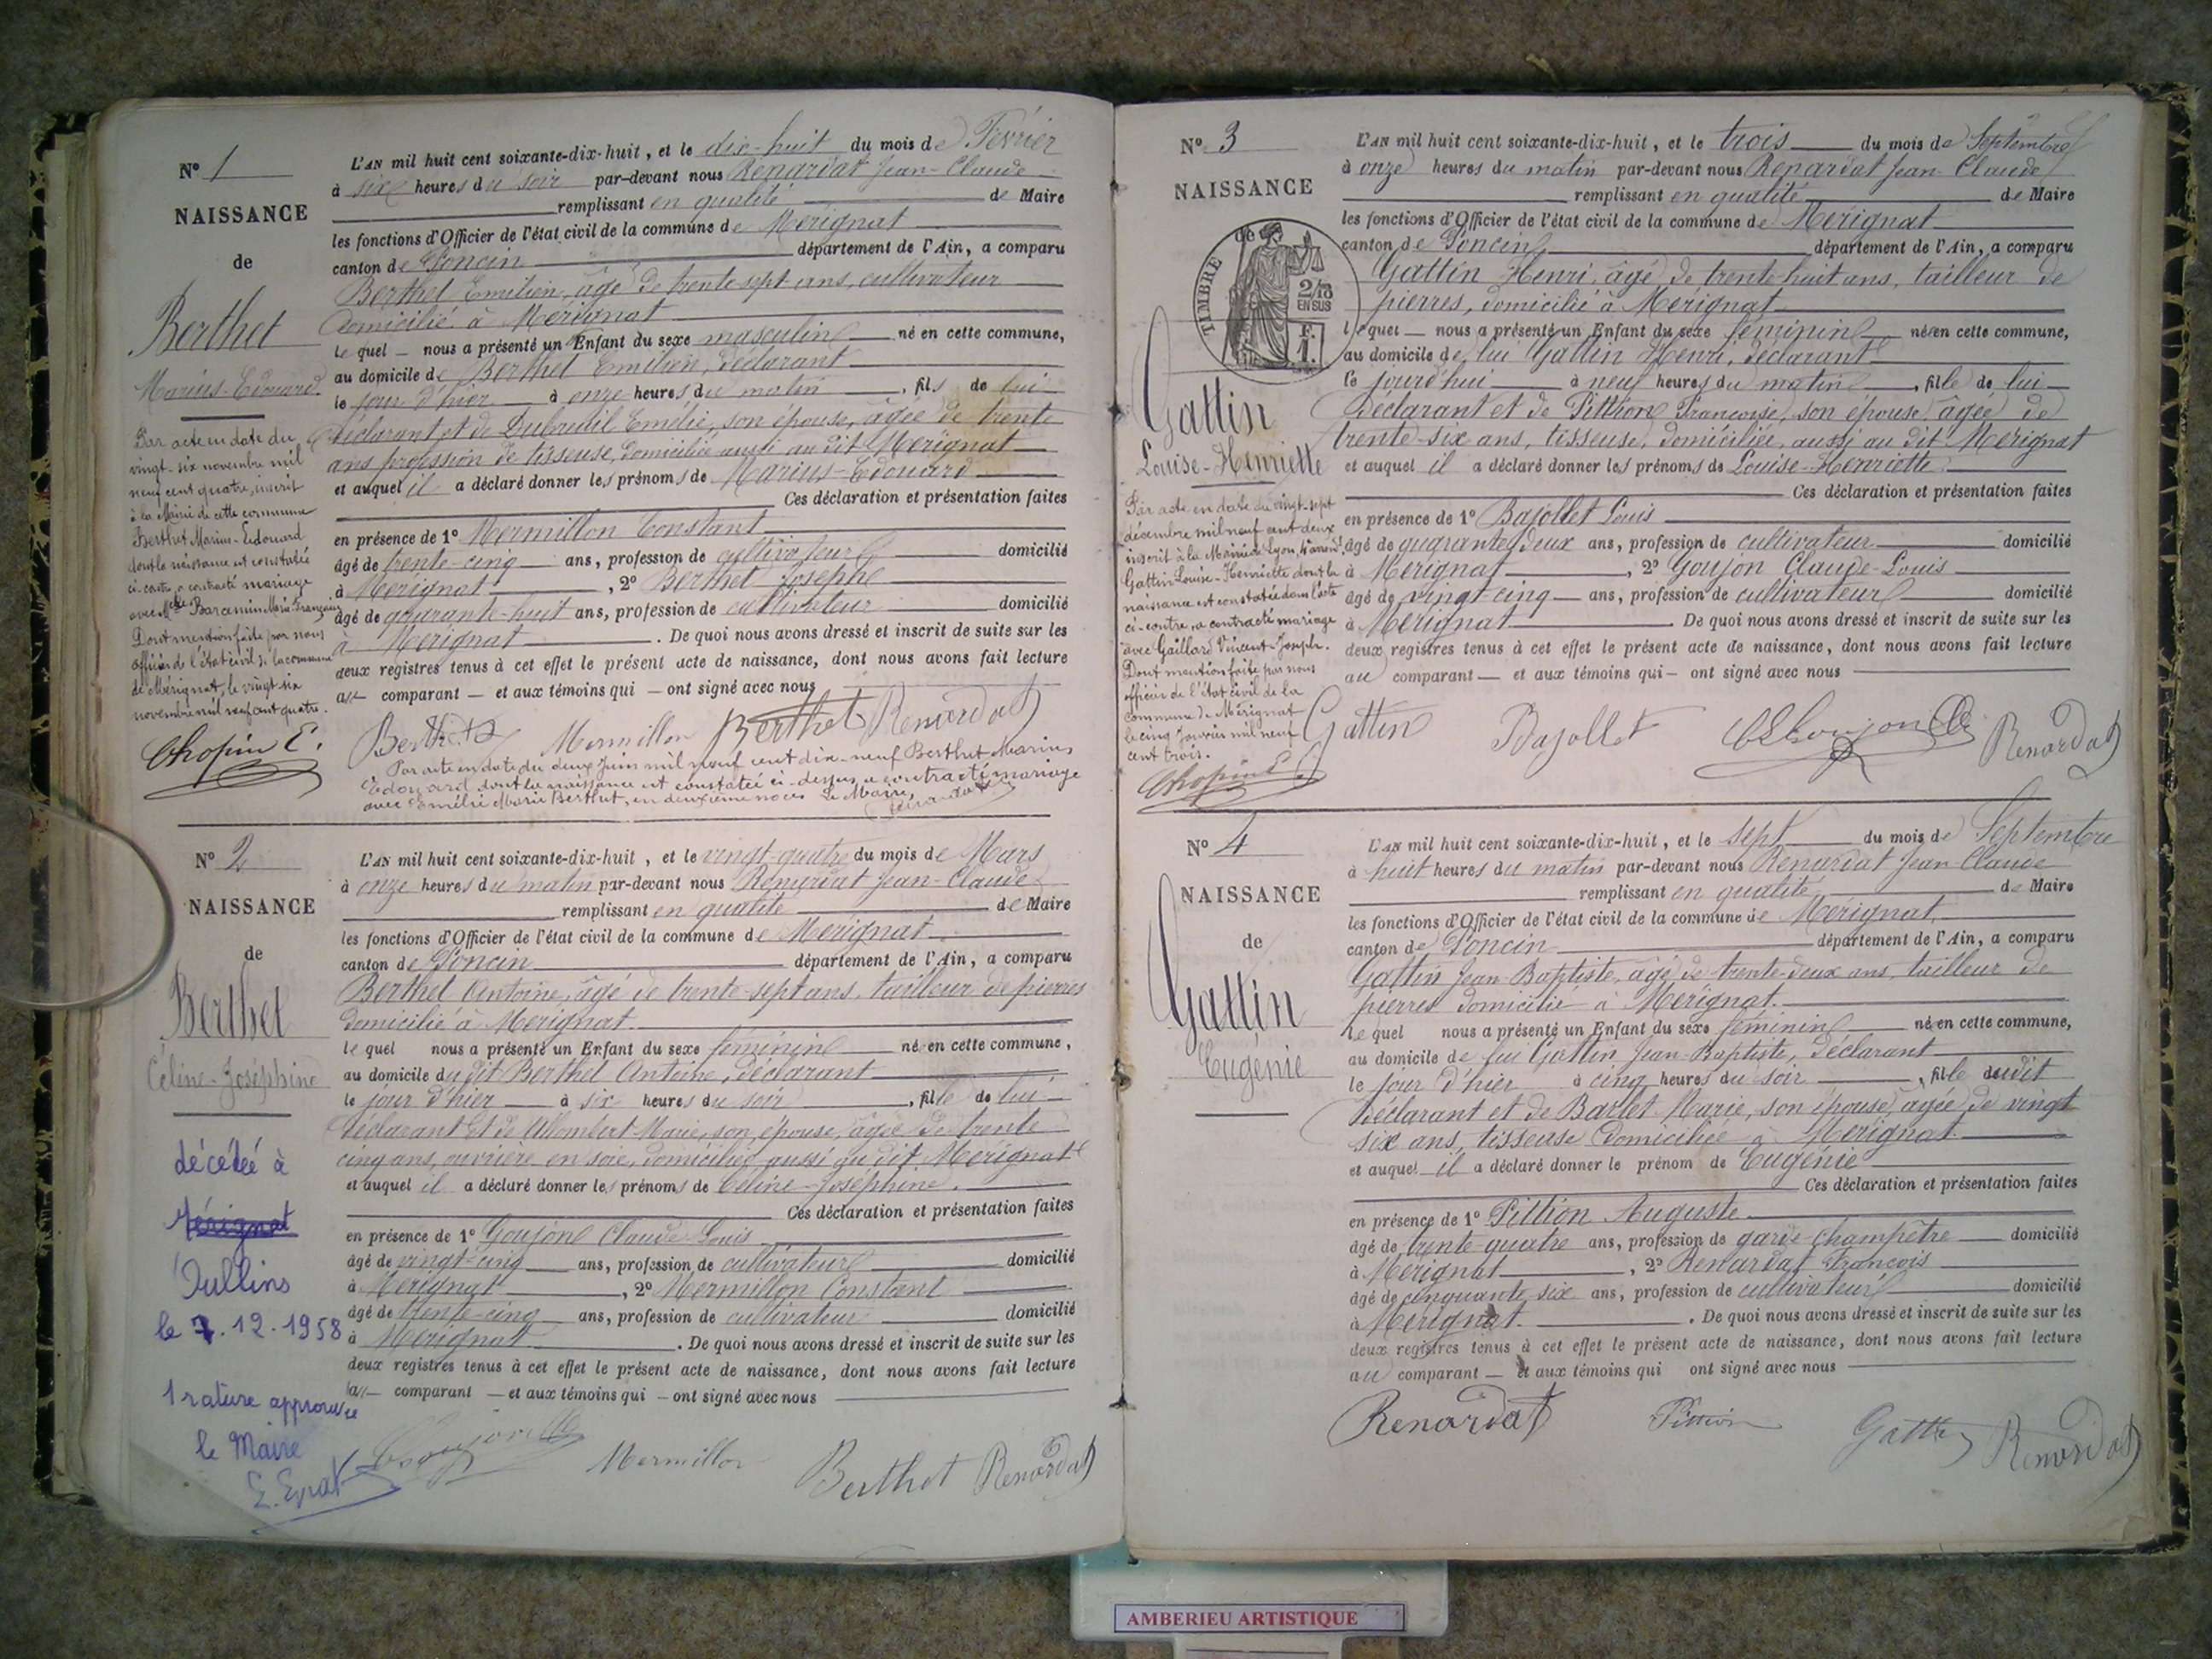 N° 1
NAISSANCE
de
Berthet
Marius-Edouard.
Par acte en date du
vingt-six novembre mil
neuf cent quatre, inscrit
à la Mairie de cette commune
Berthet Marius-Edouard
dont la naissance est constatée
ci-contre, a contracté mariage
avec Melle Barcenin Marie Françoise
Dont mention faite par nous
officier de l'état civil de la commune
de Mérignat, le vingt-six
novembre mil neuf cent quatre.
Chopin E.
L'AN mil huit cent soixante-dix-huit, et le dix-huit du mois de Février
à six heures du soir par-devant nous Renardat Jean-Claude
remplissant en qualité de Maire
les fonctions d'Officier de l'état civil de la commune de Mérignat
canton de Poncin département de l'Ain, a comparu
Berthet Emilien, âgé de trente-sept ans, cultivateur
domicilié à Mérignat
le quel nous a présenté un Enfant du sexe masculin né en cette commune,
au domicile de Berthet Emilien, déclarant
le jour d'hier à onze heures du matin, fils de lui
déclarant et de Dubreuil Emélie, son épouse, âgée de trente
ans profession de tisseuse, domiciliée aussi au dit Mérignat
et auquel il a déclaré donner les prénoms de Marius-Edouard
Ces déclaration et présentation faites
en présence de 1° Mermillon Constant
âgé de trente-cinq ans, profession de cultivateur domicilié
à Mérignat, 2° Berthet Josephe
âgé de quarante-huit ans, profession de cultivateur domicilié
à Mérignat. De quoi nous avons dressé et inscrit de suite sur les
deux registres tenus à cet effet le présent acte de naissance, dont nous avons fait lecture
au comparant et aux témoins qui ont signé avec nous
Berthet Mermillon Berthet Renardat
Par acte en date du deux Juin mil neuf cent dix-neuf Berthet Marius
Edouard dont la naissance est constatée ci-dessus a contracté mariage
avec Emélie Marie Berthet, en deuxième noces Le Maire,
N° 2
NAISSANCE
de
Berthet
Céline-Joséphine
décédée à
Mérignat
Oullins
le 7.12.1958
1 rature approuvée
le Maire
L'AN mil huit cent soixante-dix-huit, et le vingt-quatre du mois de Mars
à onze heures du matin par-devant nous Renardat Jean-Claude
remplissant en qualité de Maire
les fonctions d'Officier de l'état civil de la commune de Mérignat
canton de Poncin département de l'Ain, a comparu
Berthet Antoine, âgé de trente-sept ans, tailleur de pierres
domicilié à Mérignat
le quel nous a présenté un Enfant du sexe féminin né en cette commune,
au domicile du dit Berthet Antoine, déclarant
le jour d'hier à six heures du soir, fille de lui
déclarant et de Alombert Marie, son épouse, âgée de trente
cinq ans, ouvrière en soie, domiciliée aussi au dit Mérignat
et auquel il a déclaré donner les prénoms de Céline-Joséphine.
Ces déclaration et présentation faites
en présence de 1° Goujon Claude-Louis
âgé de vingt-cinq ans, profession de cultivateur domicilié
à Mérignat, 2° Mermillon Constant
âgé de trente-cinq ans, profession de cultivateur domicilié
à Mérignat. De quoi nous avons dressé et inscrit de suite sur les
deux registres tenus à cet effet le présent acte de naissance, dont nous avons fait lecture
au comparant et aux témoins qui ont signé avec nous
Mermillon Berthet Renardat
N° 3
NAISSANCE
de
TIMBRE
2/10
EN SUS
F.
1.
Gattin
Louise-Henriette
Par acte en date du vingt-sept
décembre mil neuf cent deux
inscrit à la Mairie de Lyon,
Gattin Louise-Henriette dont la
naissance est constatée dans l'acte
ci-contre, a contracté mariage
avec Gaillard Vincent-Joseph.
Dont mention faite par nous
officier de l'état civil de la
commune de Mérignat
le cinq Janvier mil neuf
cent trois.
Chopin E.
L'AN mil huit cent soixante-dix-huit, et le trois du mois de Septembre
à onze heures du matin par-devant nous Renardat Jean-Claude
remplissant en qualité de Maire
les fonctions d'Officier de l'état civil de la commune de Mérignat
canton de Poncin département de l'Ain, a comparu
Gattin Henri, âgé de trente-huit ans, tailleur de
pierres, domicilié à Mérignat
lequel nous a présenté un Enfant du sexe féminin née en cette commune,
au domicile de lui Gattin Henri, déclarant
le jourd'hui à neuf heures du matin, fille de lui
déclarant et de Pittion Françoise, son épouse, âgée de
trente-six ans, tisseuse, domiciliée aussi au dit Mérignat
et auquel il a déclaré donner les prénoms de Louise-Henriette.
Ces déclaration et présentation faites
en présence de 1° Bajollet Louis
âgé de quarante-deux ans, profession de cultivateur domicilié
à Mérignat, 2° Goujon Claude-Louis
âgé de vingt-cinq ans, profession de cultivateur domicilié
à Mérignat. De quoi nous avons dressé et inscrit de suite sur les
deux registres tenus à cet effet le présent acte de naissance, dont nous avons fait lecture
au comparant et aux témoins qui ont signé avec nous
Gattin Bajollet Renardat
N° 4
NAISSANCE
de
Gattin
Eugénie
L'AN mil huit cent soixante-dix-huit, et le sept du mois de Septembre
à huit heures du matin par-devant nous Renardat Jean-Claude
remplissant en qualité de Maire
les fonctions d'Officier de l'état civil de la commune de Mérignat
canton de Poncin département de l'Ain, a comparu
Gattin Jean-Baptiste, âgé de trente-deux ans, tailleur de
pierres domicilié à Mérignat.
le quel nous a présenté un Enfant du sexe féminin née en cette commune,
au domicile de lui Gattin Jean-Baptiste, déclarant
le jour d'hier à cinq heures du soir, fille dudit
déclarant et de Barlet Marie, son épouse, âgée de vingt
six ans, tisseuse domiciliée à Mérignat.
et auquel il a déclaré donner le prénom de Eugénie
Ces déclaration et présentation faites
en présence de 1° Pittion Auguste
âgé de trente-quatre ans, profession de garde champêtre domicilié
à Mérignat, 2° Renardat François
âgé de cinquante six ans, profession de cultivateur domicilié
à Mérignat. De quoi nous avons dressé et inscrit de suite sur les
deux registres tenus à cet effet le présent acte de naissance, dont nous avons fait lecture
au comparant et aux témoins qui ont signé avec nous
Renardat Pittion Gattin Renardat
AMBERIEU ARTISTIQUE